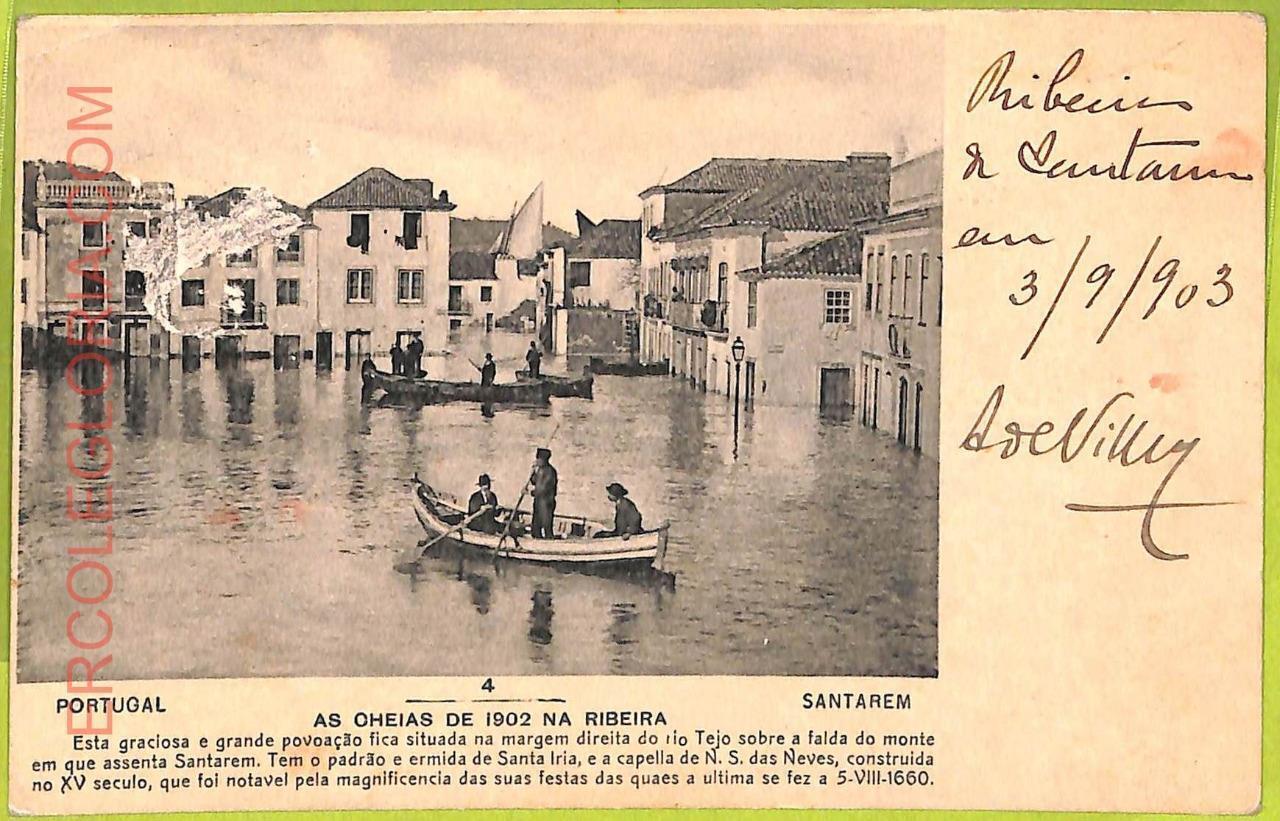 Ribeira
de Santarem
em
3/9/903
AdeVilley
ERCOLEGLORIA.COM
4
PORTUGAL
SANTAREM
AS CHEIAS DE 1902 NA RIBEIRA
Esta graciosa e grande povoação fica situada na margem direita do rio Tejo sobre a falda do monte
em que assenta Santarem. Tem o padrão e ermida de Santa Iria, e a capella de N. S. das Neves, construida
no XV seculo, que foi notavel pela magnificencia das suas festas das quaes a ultima se fez a 5-VIII-1660.